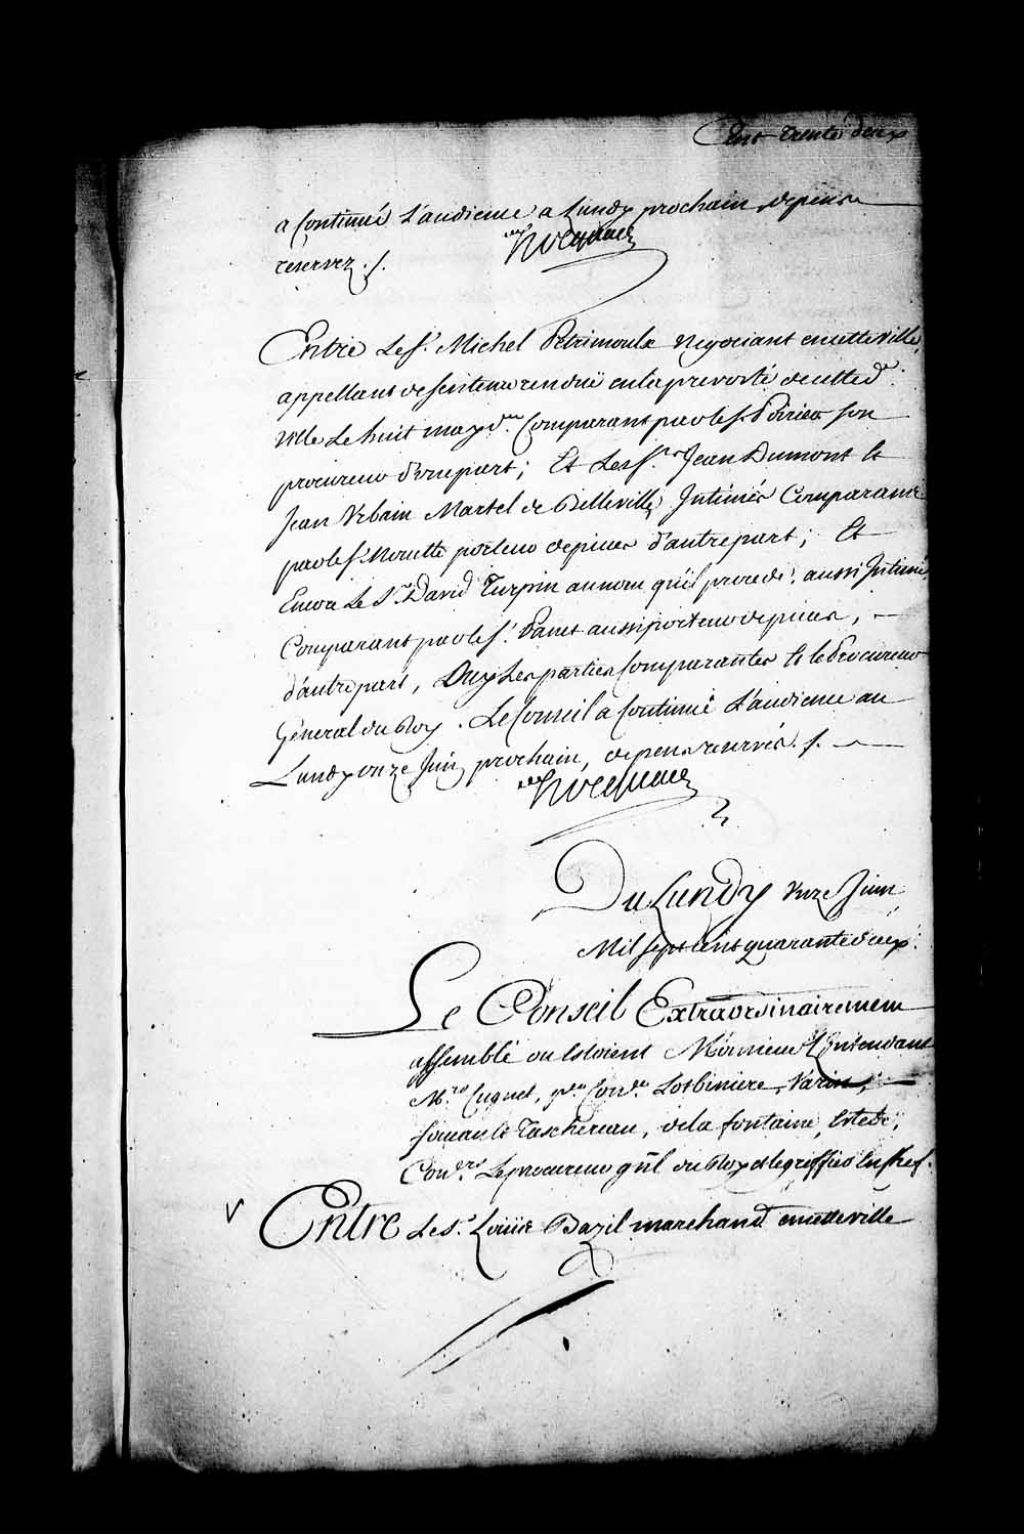 Cent trente deux
a Continué L'audience a Lundy prochain, depens
reservez ./.
hocquart
Entre Le Sr. Michel Petrimoulx Negociant en cette ville,
appellant de sentence rendue en la prevosté de cette d.
ville Le huit may d.er Comparant par le S. Poirier son
procureur d'une part; Et Les Srs Jean Dumont et
Jean Urbain Martel de Belleville, Intimés Comparans
par le S. Nouette porteur de pieces d'autre part; Et
Encore Le Sr. David Turpin au nom qu'il procede, aussi Intimé
Comparant par le S. Panet aussi porteur de pieces,
d'autre part, Ouy Les parties Comparantes Et le Procureur
General du Roy. Le Conseil a Continué L'audience au
Lundy onze Juin prochain, depens reservés ./.
hocquart
Du Lundy unze Juin
Mil sept cent quarante deux.
Le Conseil Extraordinairement
assemblé ou Estoient Monsieur L'Intendant
M.rs Cugnet, p.er Con.er Lotbiniere, Varin,
foucault Taschereau, de la fontaine, Estebe,
Con.ers Le procureur gñl du Roy et le greffier En chef.
Entre Le S. Loüis Bazil marchand en cette ville